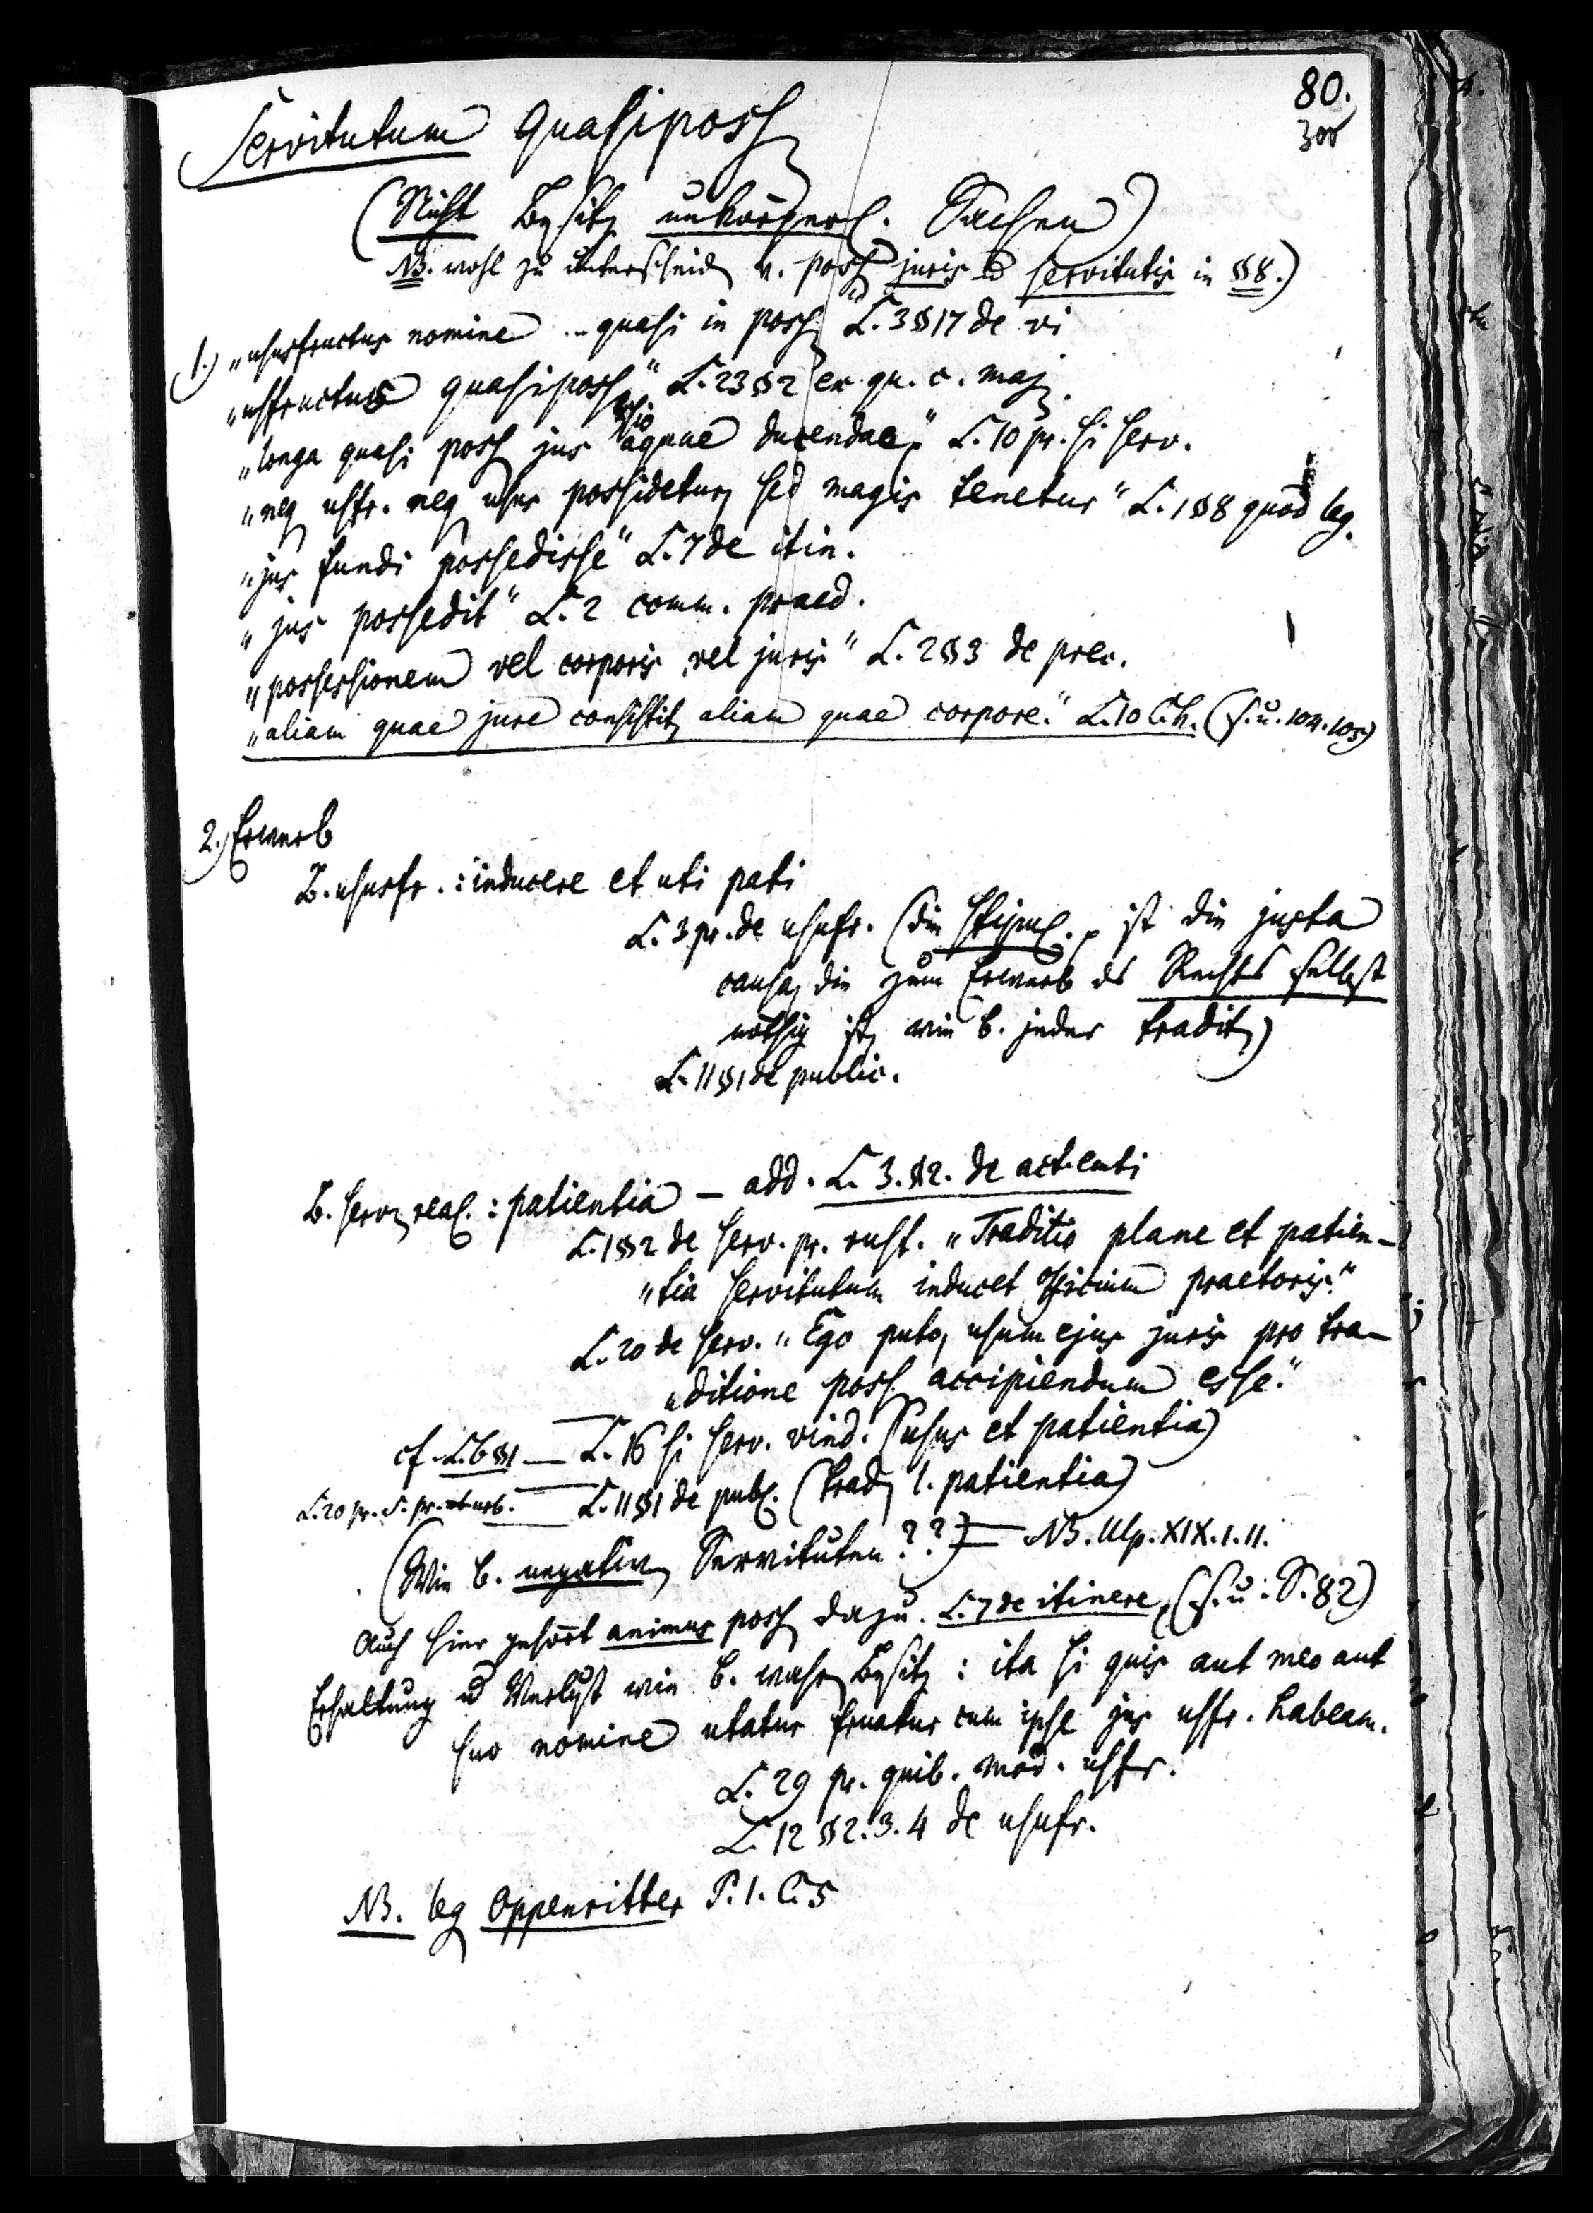 80.
300
Servitutum quasiposs
(Nicht Besitz unkörperl. Sachen)
NB. wohl zu unterscheid v. poss juris u servitutis in §8.)
1.) „ususfructus nomine .. quasi in poss" L. 3 §17 de vi
„usfructus quasiposs" L. 23 §2 ex qu. c. maj.
„longa quasi poss jus aquae ducendae" L. 10 pr. si serv.
„neq usfr. neq usus possidetur, sed magis tenetur" L. 1 §8 quod leg.
„jus fundi possedisse" L. 7 de itin.
„jus possedit" L. 2 comm. praed.
„possessionem vel corporis vel juris" L. 2 §3 de prec.
„aliam quae jure consistit, aliam quae corpore." L. 10 C. h. (s. u. 104. 105)
2.) Erwerb
B. ususfr. : inducere et uti pati
L. 3 pr. de usufr. (die stipul. ist die justa
causa, die zum Erwerb ds Rechts selbst
nöthig ist, wie b. jeder tradit)
L. 11 §1 de public.
B. serv. real. : patientia – add. L. 3. §2. de act. emti
L. 1 §2 de serv. pr. rust. „Traditio plane et patien-
„tia servitutum inducet officium praetoris."
L. 20 de serv. „Ego puto, usum ejus juris pro tra-
„ditione poss. accipiendum esse."
cf. L. 6 §1 — L. 16 si serv. vind. (usus et patientia)
L. 20 pr. S. pr. urb. — L. 11 §1 de publ. (trad. l. patientia)
(Wie b. negativ Servituten ??) — NB. Ulp. XIX. 1. 11.
Auch hier gehört animus poss dazu. L. 7 de itinere. (s. u. S. 82)
Erhaltung u Verlust wie b. wahr Besitz : ita si quis aut meo aut
suo nomine utatur fruatur cum ipse jus usfr. habeam.
L. 29 pr. quib. mod. usfr.
L. 12 §2. 3. 4 de usufr.
NB. leg Oppenritter P. 1. C. 5